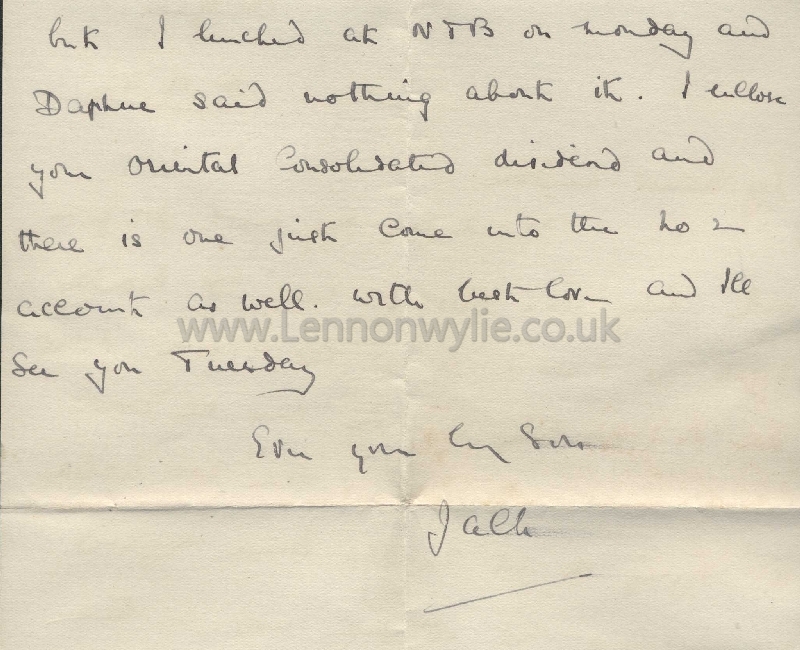 but I lunched at NTB on monday and
Daphne said nothing about it. I enclose
your Oriental Consolidated dividend and
there is one just come into the No 2
account as well. with best love and I'll
www.Lennonwylie.co.uk
See you Tuesday
Ever your
Jack